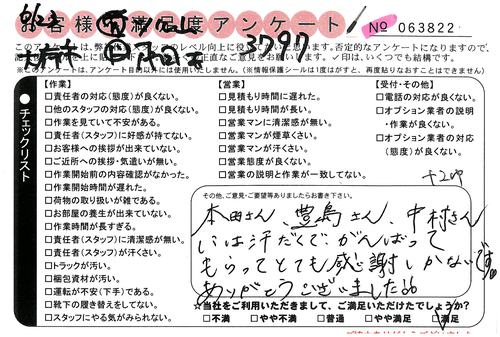 お客様満足度アンケート
No 063822
3797
このアンケートは、弊
のレベル向上に役
います。否定的なアンケートになりますので、
正直なご意見をお願い
✓印は、いくつでも結構です。
※このアンケートは、アンケート目的以外には使用いたしません。(※情報保護シールは1度がすと、再度貼りなおすことはできません)
チェックリスト
【作業】
□責任者の対応(態度)が良くない。
□他のスタッフの対応(態度)が良くない。
□作業を見ていて不安がある。
□責任者(スタッフ)に好感が持てない。
□お客様への挨拶が出来ていない。
□ご近所への挨拶・気遣いが無い。
□作業開始前の内容確認がなかった。
□作業開始時間が遅れた。
□荷物の取り扱いが雑である。
□お部屋の養生が出来ていない。
□作業時間が長すぎる。
□責任者(スタッフ)に清潔感が無い。
□責任者(スタッフ)が汗くさい。
□トラックが汚い。
□梱包資材が汚い。
□運転が不安(下手)である。
□靴下の履き替えをしてない。
□スタッフにやる気がみられない。
【営業】
□見積もり時間に遅れた。
□見積もり時間が長い。
□営業マンに清潔感が無い。
□営業マンが煙草くさい。
□営業マンが汗くさい。
□営業態度が良くない。
□営業の説明と作業が一致してない。
【受付・その他】
□電話の対応が良くない。
□オプション業者の説明
・作業が良くない。
□オプション業者の対応
(態度)が良くない。
その他、ご意見・ご要望等ありましたらお書き下さい。
本田さん 豊島さん、中村さん
には汗だくで、がんばって
もらってとても感謝しかないです。
ありがとうございました
☆当社をご利用いただきまして、ご満足いただけたでしょうか?
□不満 □やや不満 □普通 □やや満足 □満足